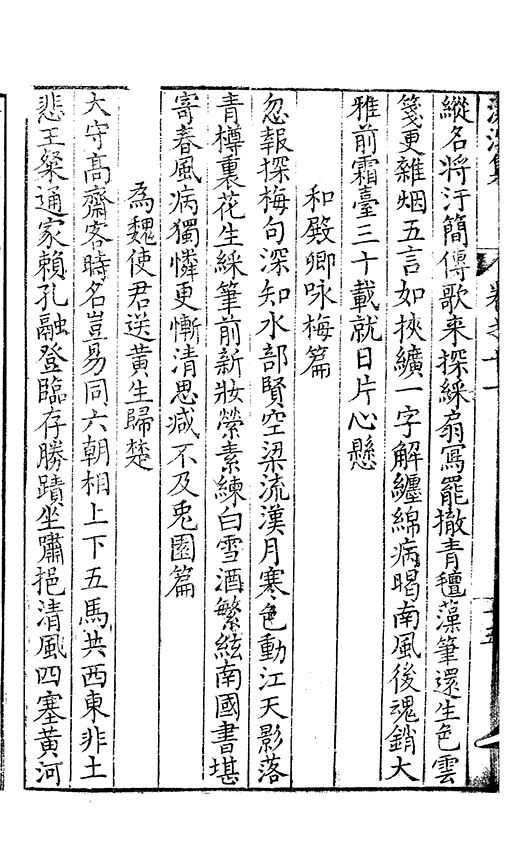 縱名將汙簡傳歌來探綵扇寫罷撤青氊藻筆還生色雲
箋更雜烟五言如挾纊一字解纏綿病暍南風後魂銷大
雅前霜臺三十載就日片心懸
和殿卿咏梅篇
忽報探梅句深知水部賢空梁流漢月寒色動江天影落
青樽裏花生綵筆前新妝縈素練白雪酒繁絃南國書堪
寄春風病獨憐更慚清思減不及兎園篇
為魏使君送黃生歸楚
大守高齋客時名豈易同六朝相上下五馬共西東非土
悲王粲通家賴孔融登臨存勝蹟坐嘯挹清風四塞黃河